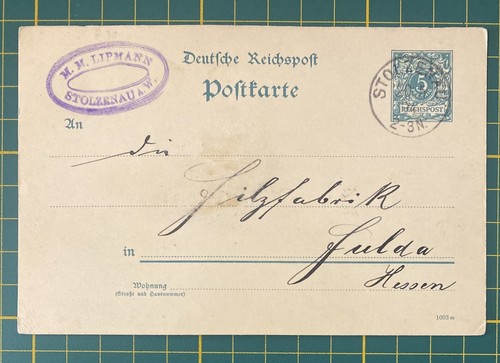 M. M. LIPMANN
STOLZENAU A. W.
Deutsche Reichspost
Postkarte
STOLZENAU
2-3N.
5
REICHSPOST
An
die
Filzfabrik
in Fulda
Hessen
Wohnung
(Straße und Hausnummer)
1093 m